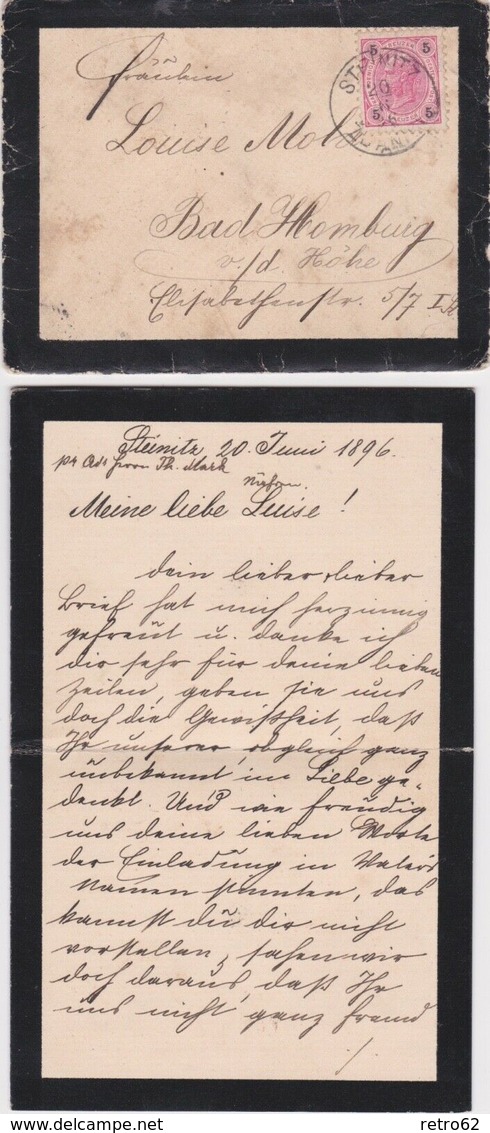 Fräulein
Louise
Bad Homburg
v/d Höhe
Elisabethenstr. 5/7 I
5 5
5 5
STEINITZ
20
6
Steinitz 20. Juni 1896.
Th. Mark
Meine liebe Luise!
dein lieber, lieber
Brief hat mich herzinnig
gefreut u. danke ich
dir sehr für deine lieben
Zeilen, geben sie uns
doch die Gewißheit, daß
Ihr unserer, obgleich ganz
unbekannt im Liebe ge-
denkt. Und wie freudig
uns deine lieben Worte
der Einladung in Vaters
Namen stimmten, das
kannst du dir nicht
vorstellen, sahen wir
doch daraus, daß Ihr
uns nicht ganz fremd
./.
www.delcampe.net
retro62